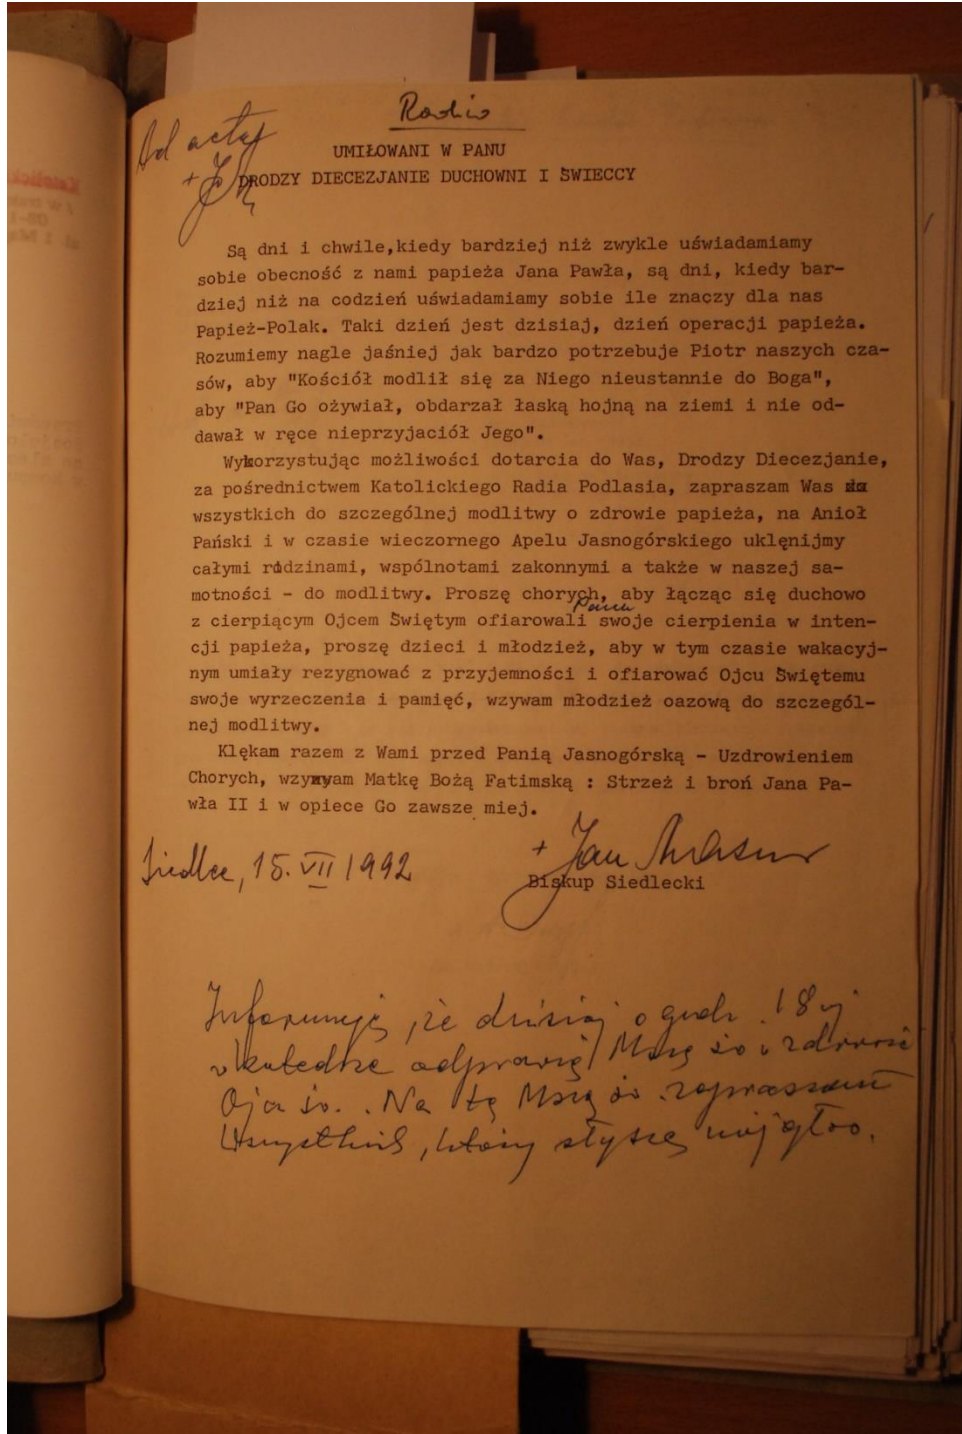 Radio
Ad acta
UMIŁOWANI W PANU
DRODZY DIECEZJANIE DUCHOWNI I ŚWIECCY
Są dni i chwile,kiedy bardziej niż zwykle uświadamiamy
sobie obecność z nami papieża Jana Pawła, są dni, kiedy bar-
dziej niż na codzień uświadamiamy sobie ile znaczy dla nas
Papież-Polak. Taki dzień jest dzisiaj, dzień operacji papieża.
Rozumiemy nagle jaśniej jak bardzo potrzebuje Piotr naszych cza-
sów, aby "Kościół modlił się za Niego nieustannie do Boga",
aby "Pan Go ożywiał, obdarzał łaską hojną na ziemi i nie od-
dawał w ręce nieprzyjaciół Jego".
Wykorzystując możliwości dotarcia do Was, Drodzy Diecezjanie,
za pośrednictwem Katolickiego Radia Podlasia, zapraszam Was
wszystkich do szczególnej modlitwy o zdrowie papieża, na Anioł
Pański i w czasie wieczornego Apelu Jasnogórskiego uklęnijmy
całymi rodzinami, wspólnotami zakonnymi a także w naszej sa-
motności - do modlitwy. Proszę chorych, aby łącząc się duchowo
z cierpiącym Ojcem Świętym ofiarowali Panu swoje cierpienia w inten-
cji papieża, proszę dzieci i młodzież, aby w tym czasie wakacyj-
nym umiały rezygnować z przyjemności i ofiarować Ojcu Świętemu
swoje wyrzeczenia i pamięć, wzywam młodzież oazową do szczegól-
nej modlitwy.
Klękam razem z Wami przed Panią Jasnogórską - Uzdrowieniem
Chorych, wzywam Matkę Bożą Fatimską : Strzeż i broń Jana Pa-
wła II i w opiece Go zawsze miej.
Siedlce, 15. VII 1992
+ Jan Mazur
Biskup Siedlecki
Informuję, że dzisiaj o godz. 18 ej
w katedrze odprawię Mszę św o zdrowie
Ojca św. . Na tę Mszę św. zapraszam
Wszystkich, którzy słyszą mój głos.